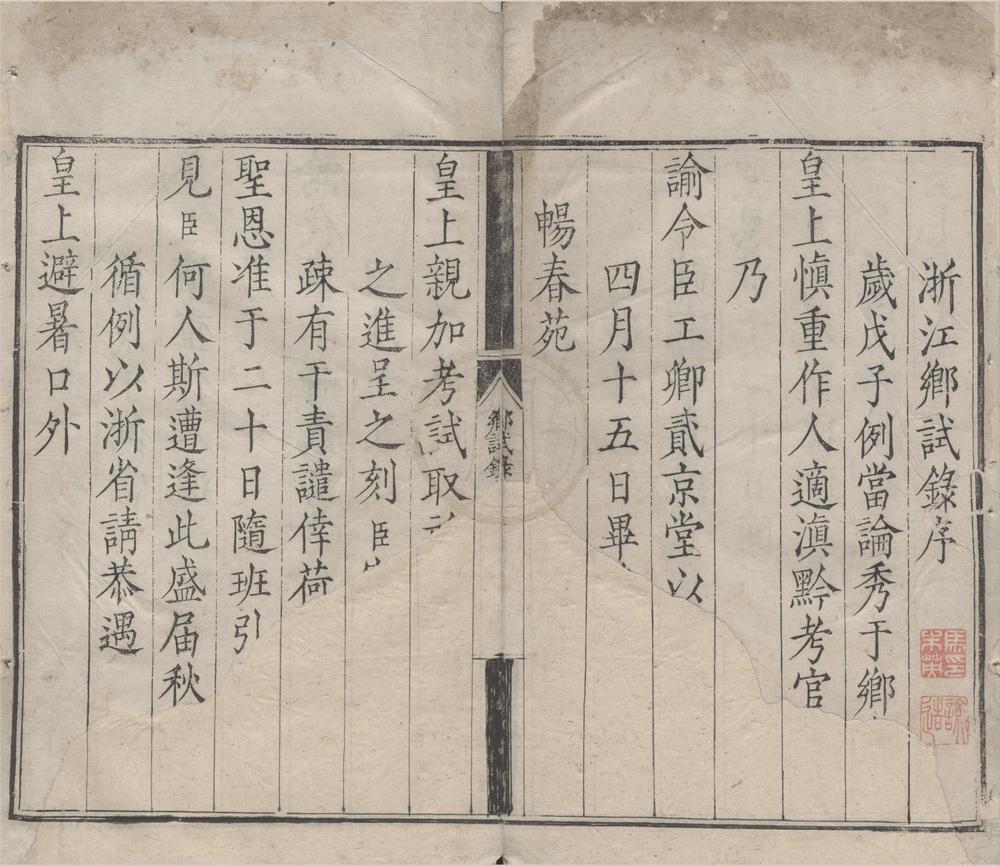 浙江鄉試錄序
歲戊子例當論秀于鄉
皇上慎重作人適滇黔考官
乃
諭令臣工卿貳京堂以
四月十五日畢
暢春苑
鄉試錄
皇上親加考試取
之進呈之刻臣
疎有干責譴倖荷
聖恩准于二十日隨班引
見臣何人斯遭逢此盛届秋
循例以浙省請恭遇
皇上避暑口外